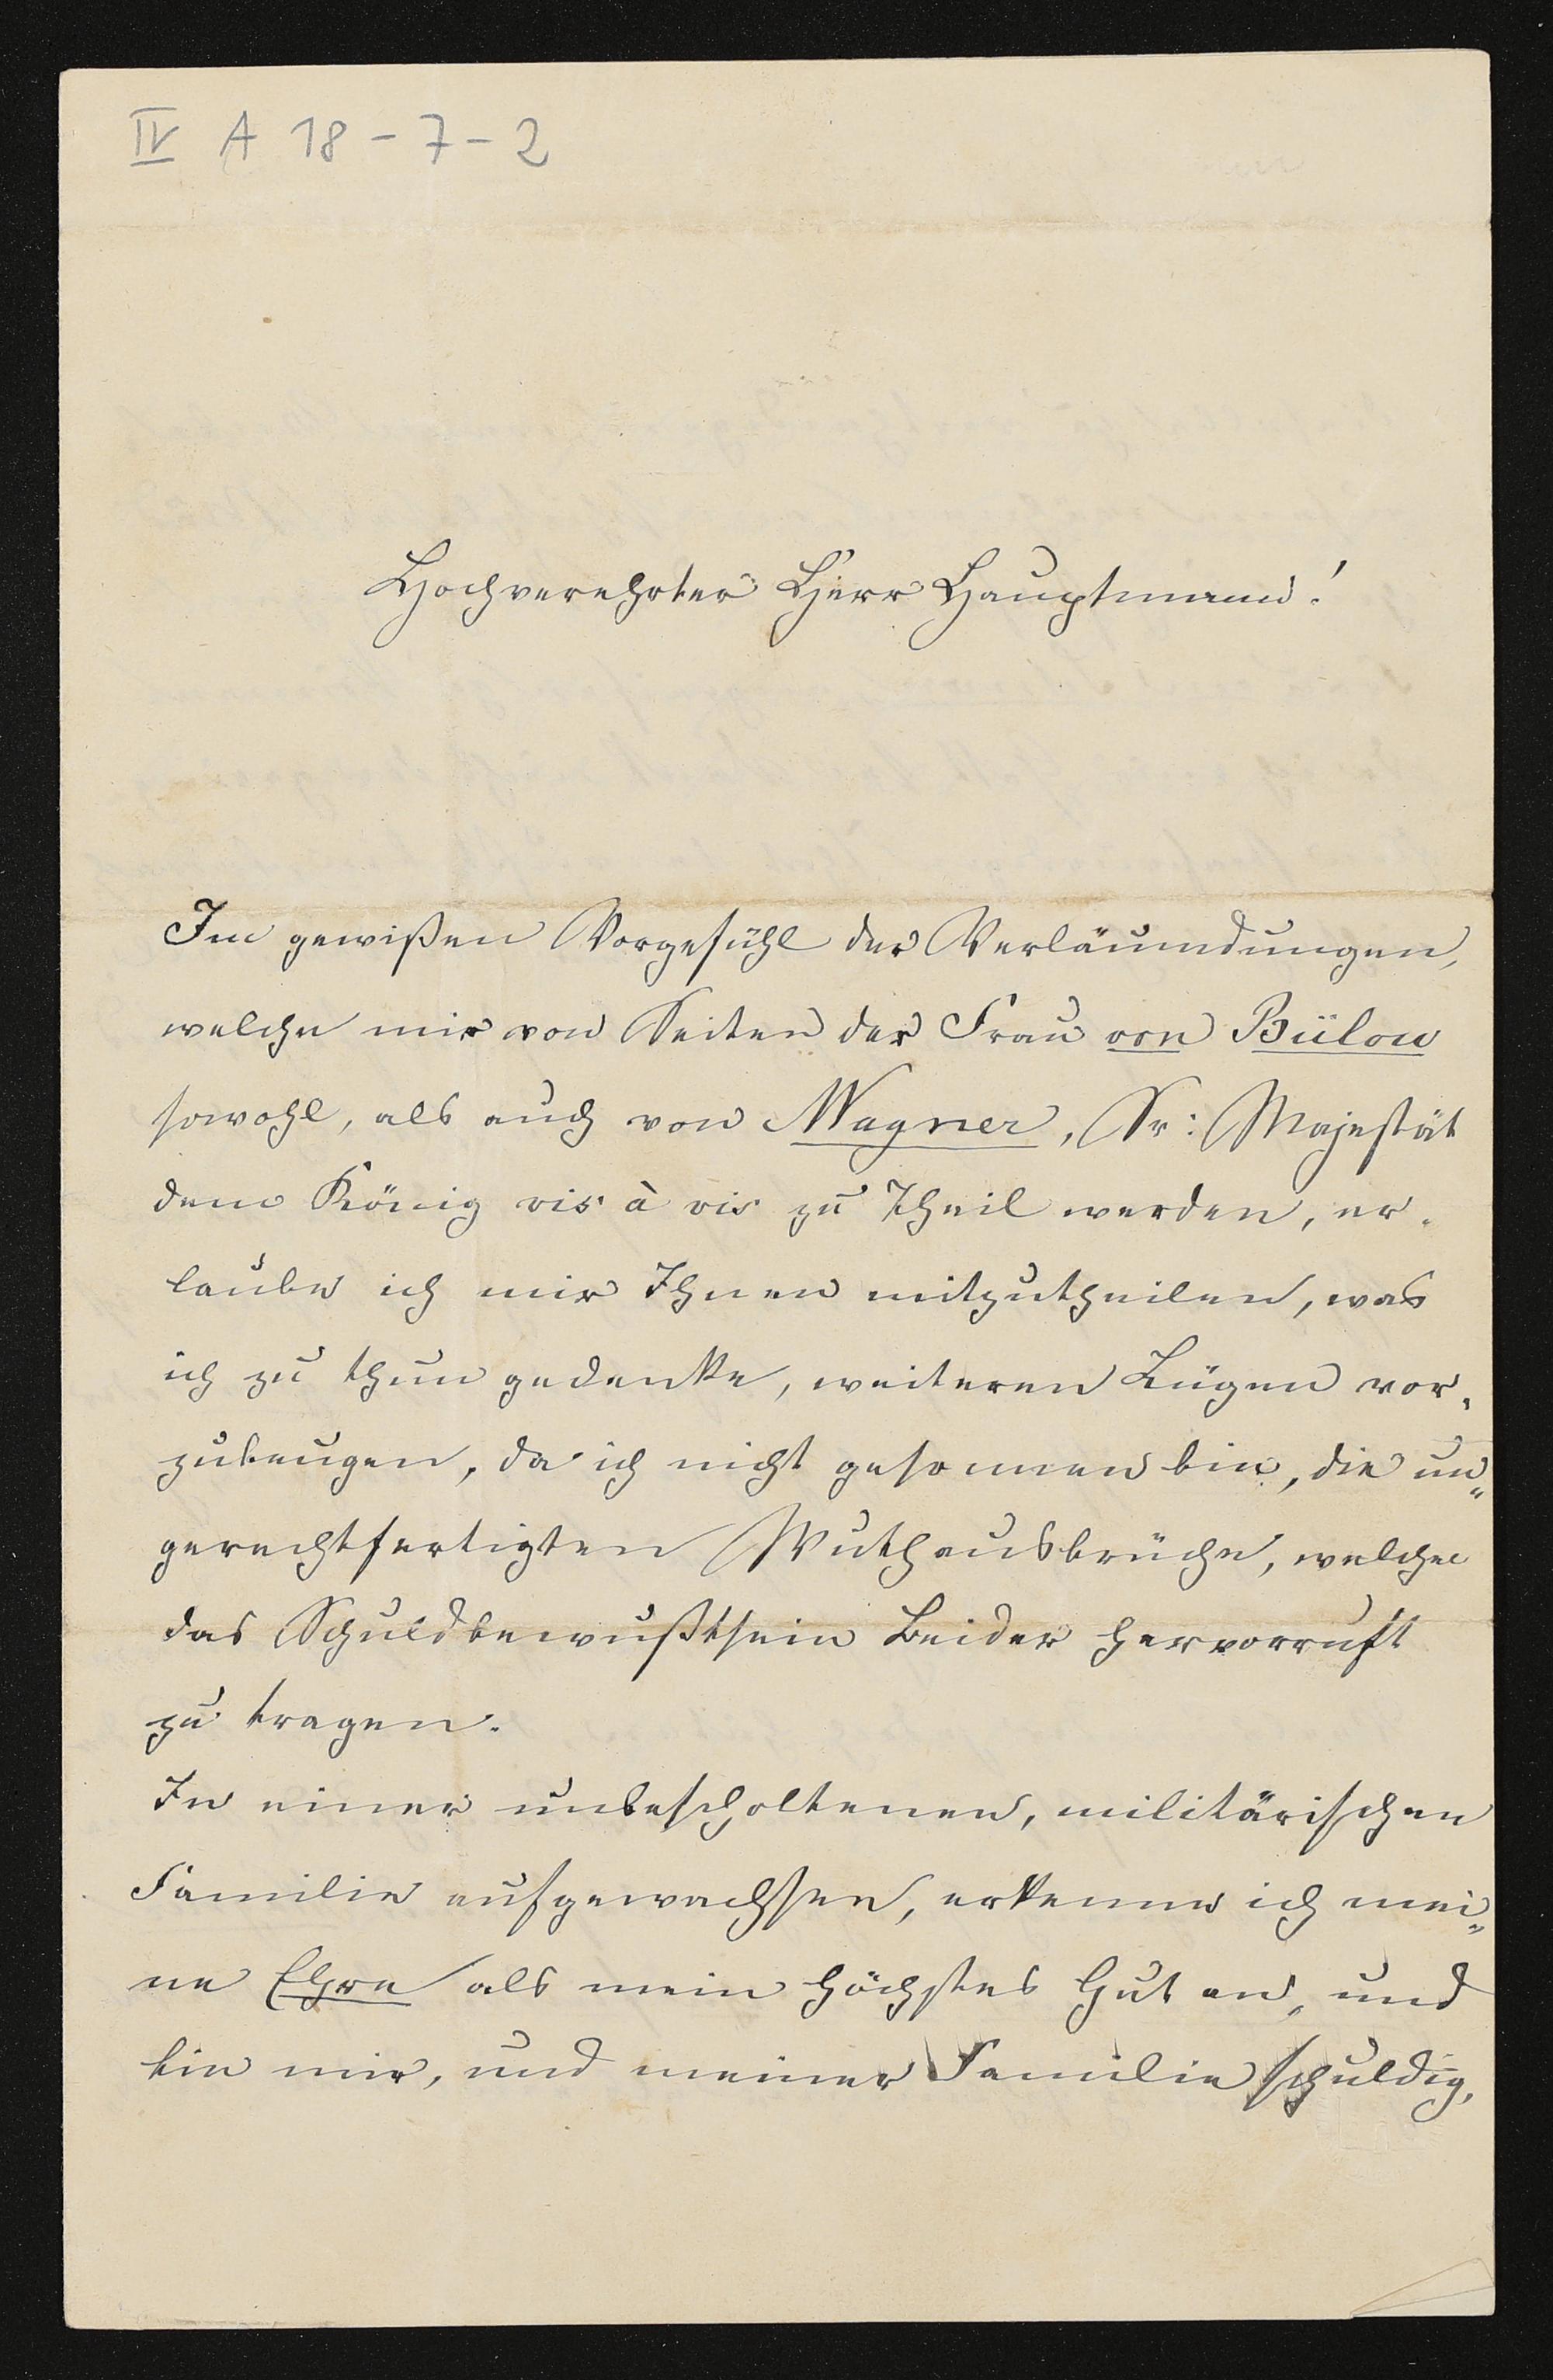 IV A 18-7-2
Hochverehrter Herr Hauptmann!
Im gewißen Vorgefühl der Verläumdungen,
welche mir von Seiten der Frau von Bülow
sowohl, als auch von Wagner, Sr: Majestät
dem König vis à vis zu Theil werden, er-
laube ich mir Ihnen mitzutheilen, was
ich zu thun gedenke, weiteren Lügen vor-
zubeugen, da ich nicht gesonnen bin, die un-
gerechtfertigten Wuthausbrüche, welche
das Schuldbewußtsein Beider hervorruft
zu tragen.
In einer unbescholtenen, militärischen
Familie aufgewachsen, erkenne ich mei-
ne Ehre als mein höchstes Gut an, und
bin mir, und meiner Familie schuldig,